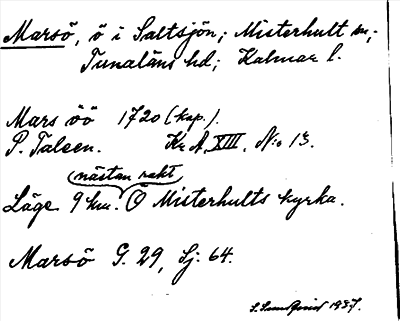 Marsö, ö i Saltsjön; Misterhult sn;
Tunaläns hd; Kalmar l.
Mars öö 1720 (kop.).
P. Taleen. Kr A, XIII, N:o 13.
(nästan rakt)
Läge 9 km. Ö Misterhults kyrka.
Marsö G. 29, Sj. 64.
S. Sundqvist 1937.